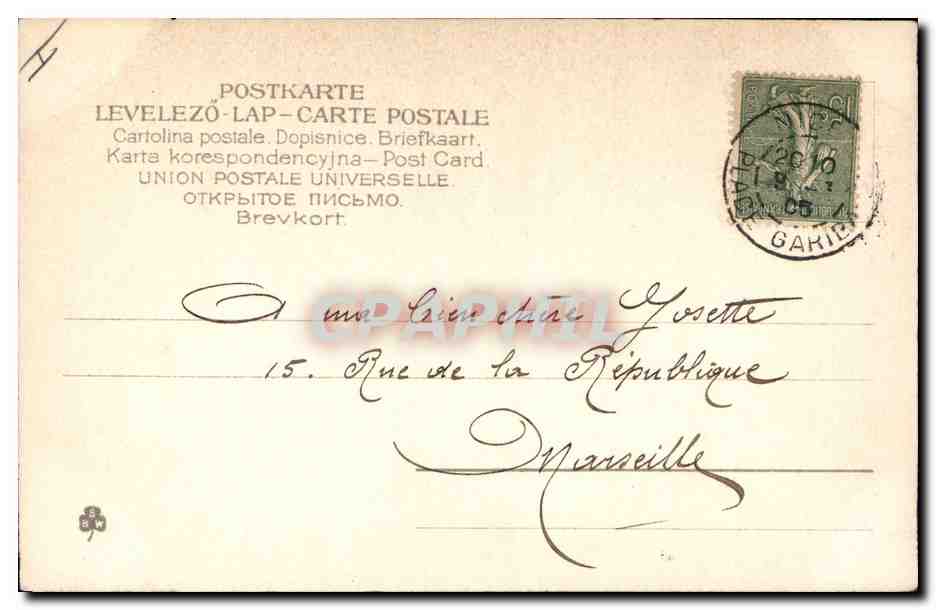 POSTKARTE
LEVELEZŐ-LAP – CARTE POSTALE
Cartolina postale. Dopisnice. Briefkaart.
Karta korespondencyjna – Post Card
UNION POSTALE UNIVERSELLE.
ОТКРЫТОЕ ПИСЬМО.
Brevkort.
15
20
05
PLACE
CPAPHIL
A ma bien chère Josette
15. Rue de la République
Marseille
S
B W